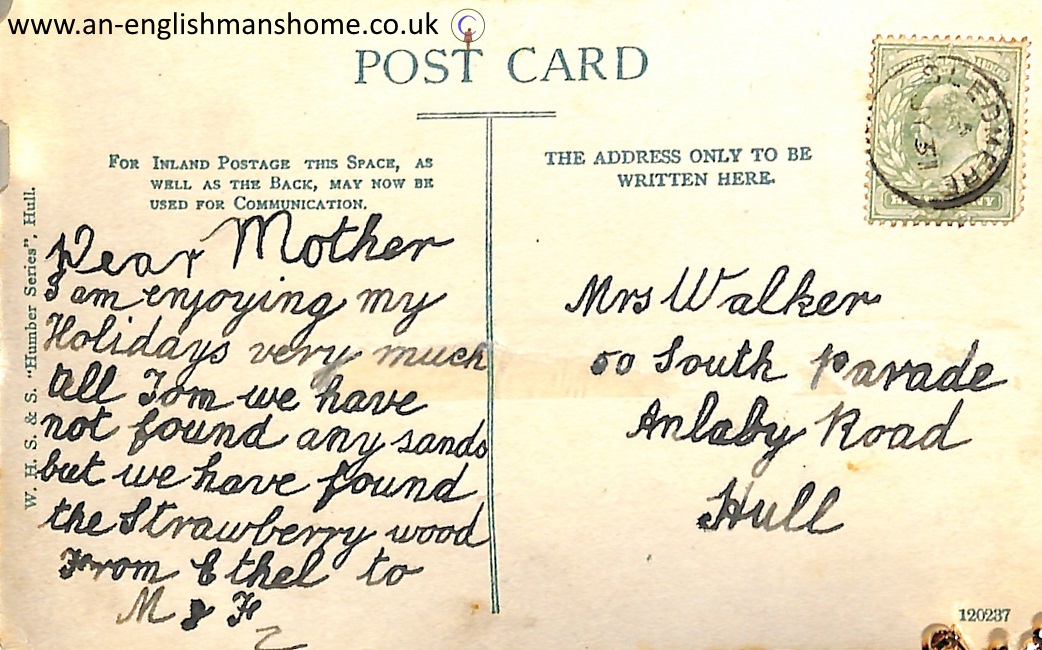 www.an-englishmanshome.co.uk
POST CARD
FOR INLAND POSTAGE THIS SPACE, AS
WELL AS THE BACK, MAY NOW BE
USED FOR COMMUNICATION.
THE ADDRESS ONLY TO BE
WRITTEN HERE.
SLEDMERE
W. H. S. & S. "Humber Series", Hull.
Dear Mother
I am enjoying my
Holidays very much
all Tom we have
not found any sands
but we have found
the Strawberry wood
From Ethel to
M & F
Mrs Walker
50 South Parade
Anlaby Road
Hull
120237